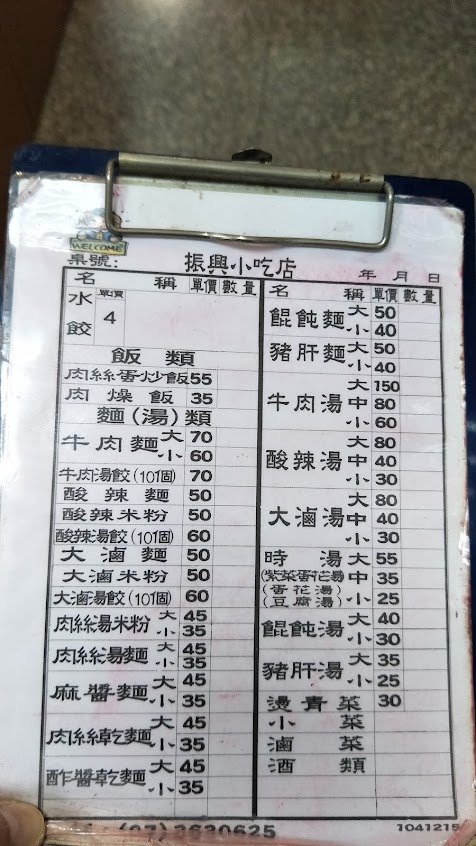 WELCOME
桌號:
振興小吃店
年 月 日
名 稱 單價 數量
水餃 單價 4
飯類
肉絲蛋炒飯 55
肉燥飯 35
麵(湯)類
牛肉麵 大 70
小 60
牛肉湯餃(10個) 70
酸辣麵 50
酸辣米粉 50
酸辣湯餃(10個) 60
大滷麵 50
大滷米粉 50
大滷湯餃(10個) 60
肉絲湯米粉 大 45
小 35
肉絲湯麵 大 45
小 35
麻醬麵 大 45
小 35
肉絲乾麵 大 45
小 35
酢醬乾麵 大 45
小 35
名 稱 單價 數量
餛飩麵 大 50
小 40
豬肝麵 大 50
小 40
牛肉湯 大 150
中 80
小 60
酸辣湯 大 80
中 40
小 30
大滷湯 大 80
中 40
小 30
時湯 大 55
(紫菜蛋花湯) 中 35
(蛋花湯)
(豆腐湯) 小 25
餛飩湯 大 40
小 30
豬肝湯 大 35
小 25
燙青菜 30
小菜
滷菜
酒類
(07)3630625
1041215